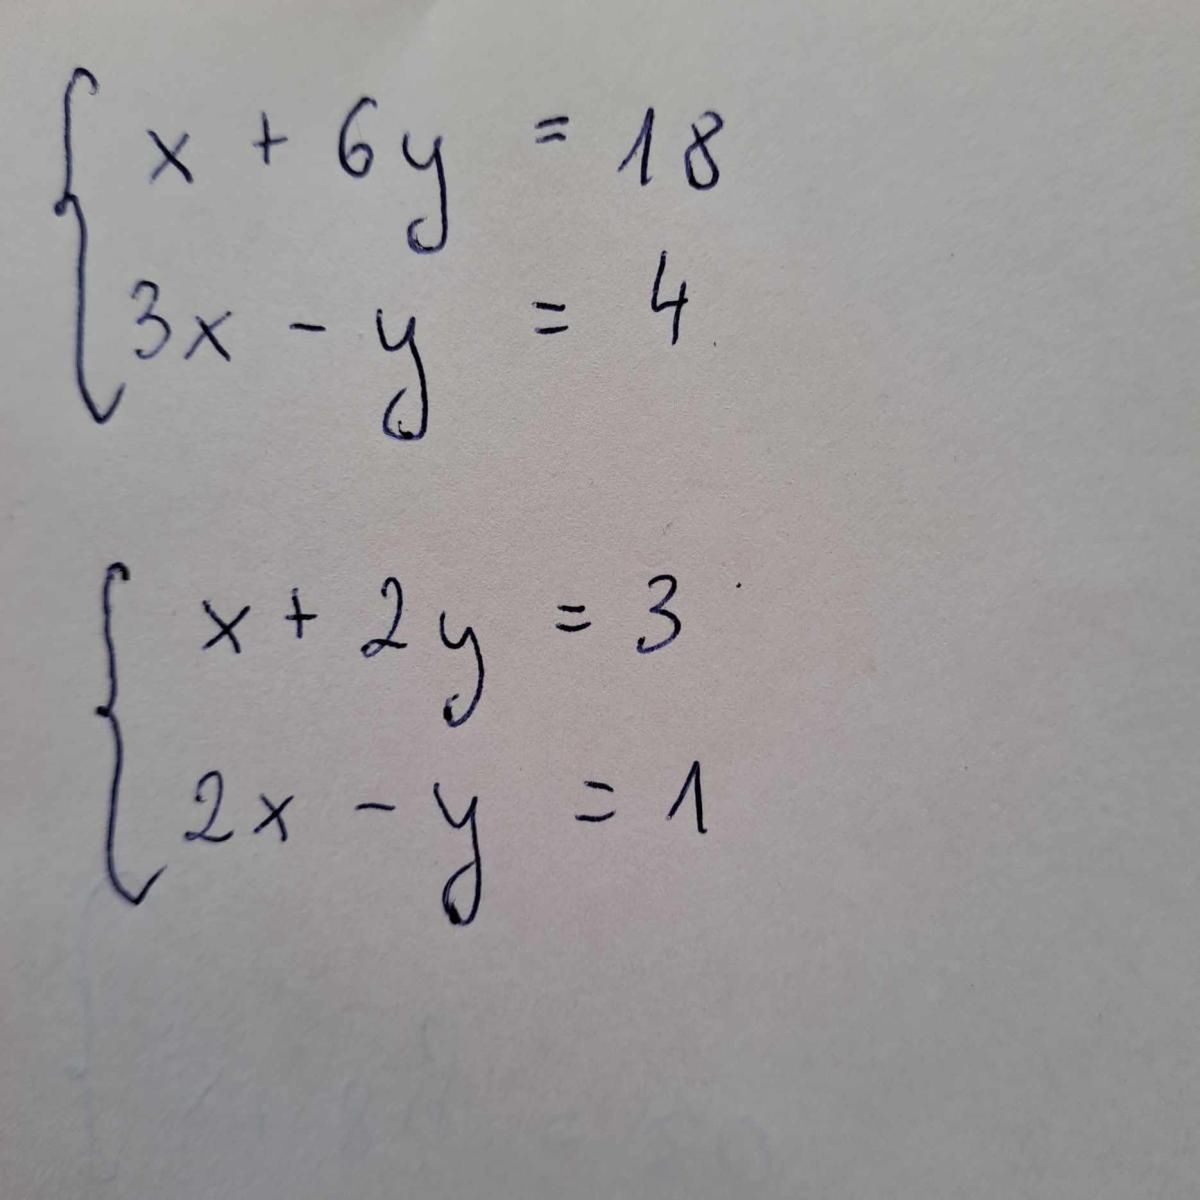 x + 6y = 18
3x - y = 4
x + 2y = 3
2x - y = 1